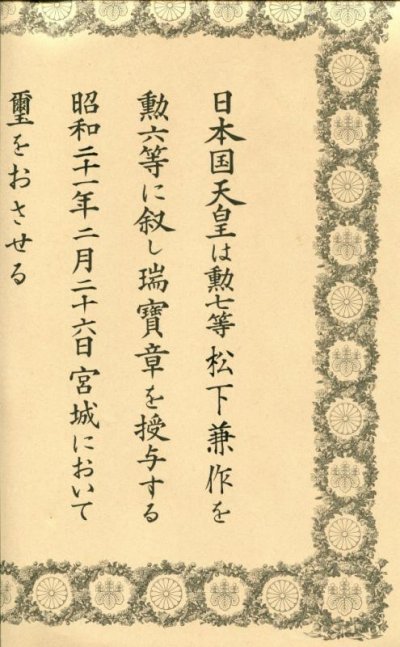 日本国天皇は勲七等松下兼作を
勲六等に叙し瑞寶章を授与する
昭和二十一年二月二十六日宮城において
璽をおさせる